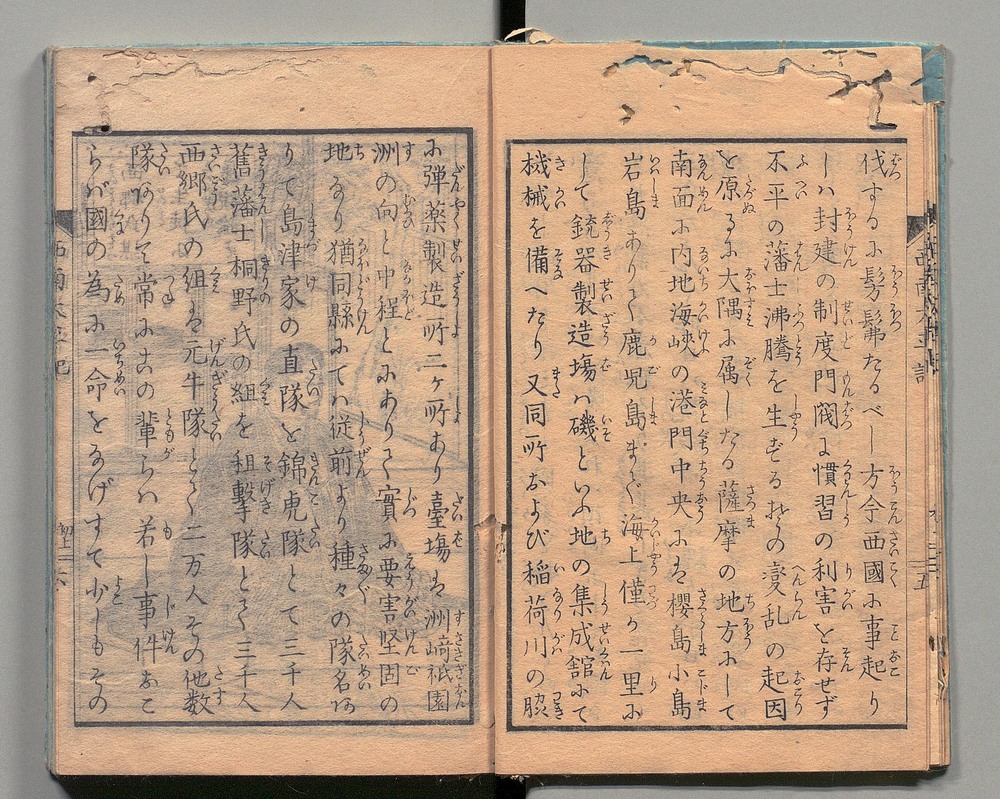 伐するに髣髴たるべし方今西國に事起り
しハ封建の制度門閥は慣習の利害を存せず
不平の藩士沸騰を生ぜる故の変乱の起因
を原るに大隅に属したる薩摩の地方にして
南面に内地海峡の港門中央には櫻島小島
岩島ありて鹿児島まで海上僅か一里に
して銃器製造場ハ磯といふ地の集成舘にて
機械を備へたり又同所および稲荷川の脇
に弾薬製造所二ヶ所あり臺場は洲﨑祇園
洲の向と中程とにありて實に要害堅固の
地なり猶同縣にてハ従前より種々の隊名有
りて島津家の直隊を錦虎隊とて三千人
舊藩士桐野氏の組を狙撃隊とて三千人
西郷氏の組は元牛隊とて二万人その他数
隊ありて常に此の輩らハ若し事件おこ
らバ國の為に一命をなげすて少しもその